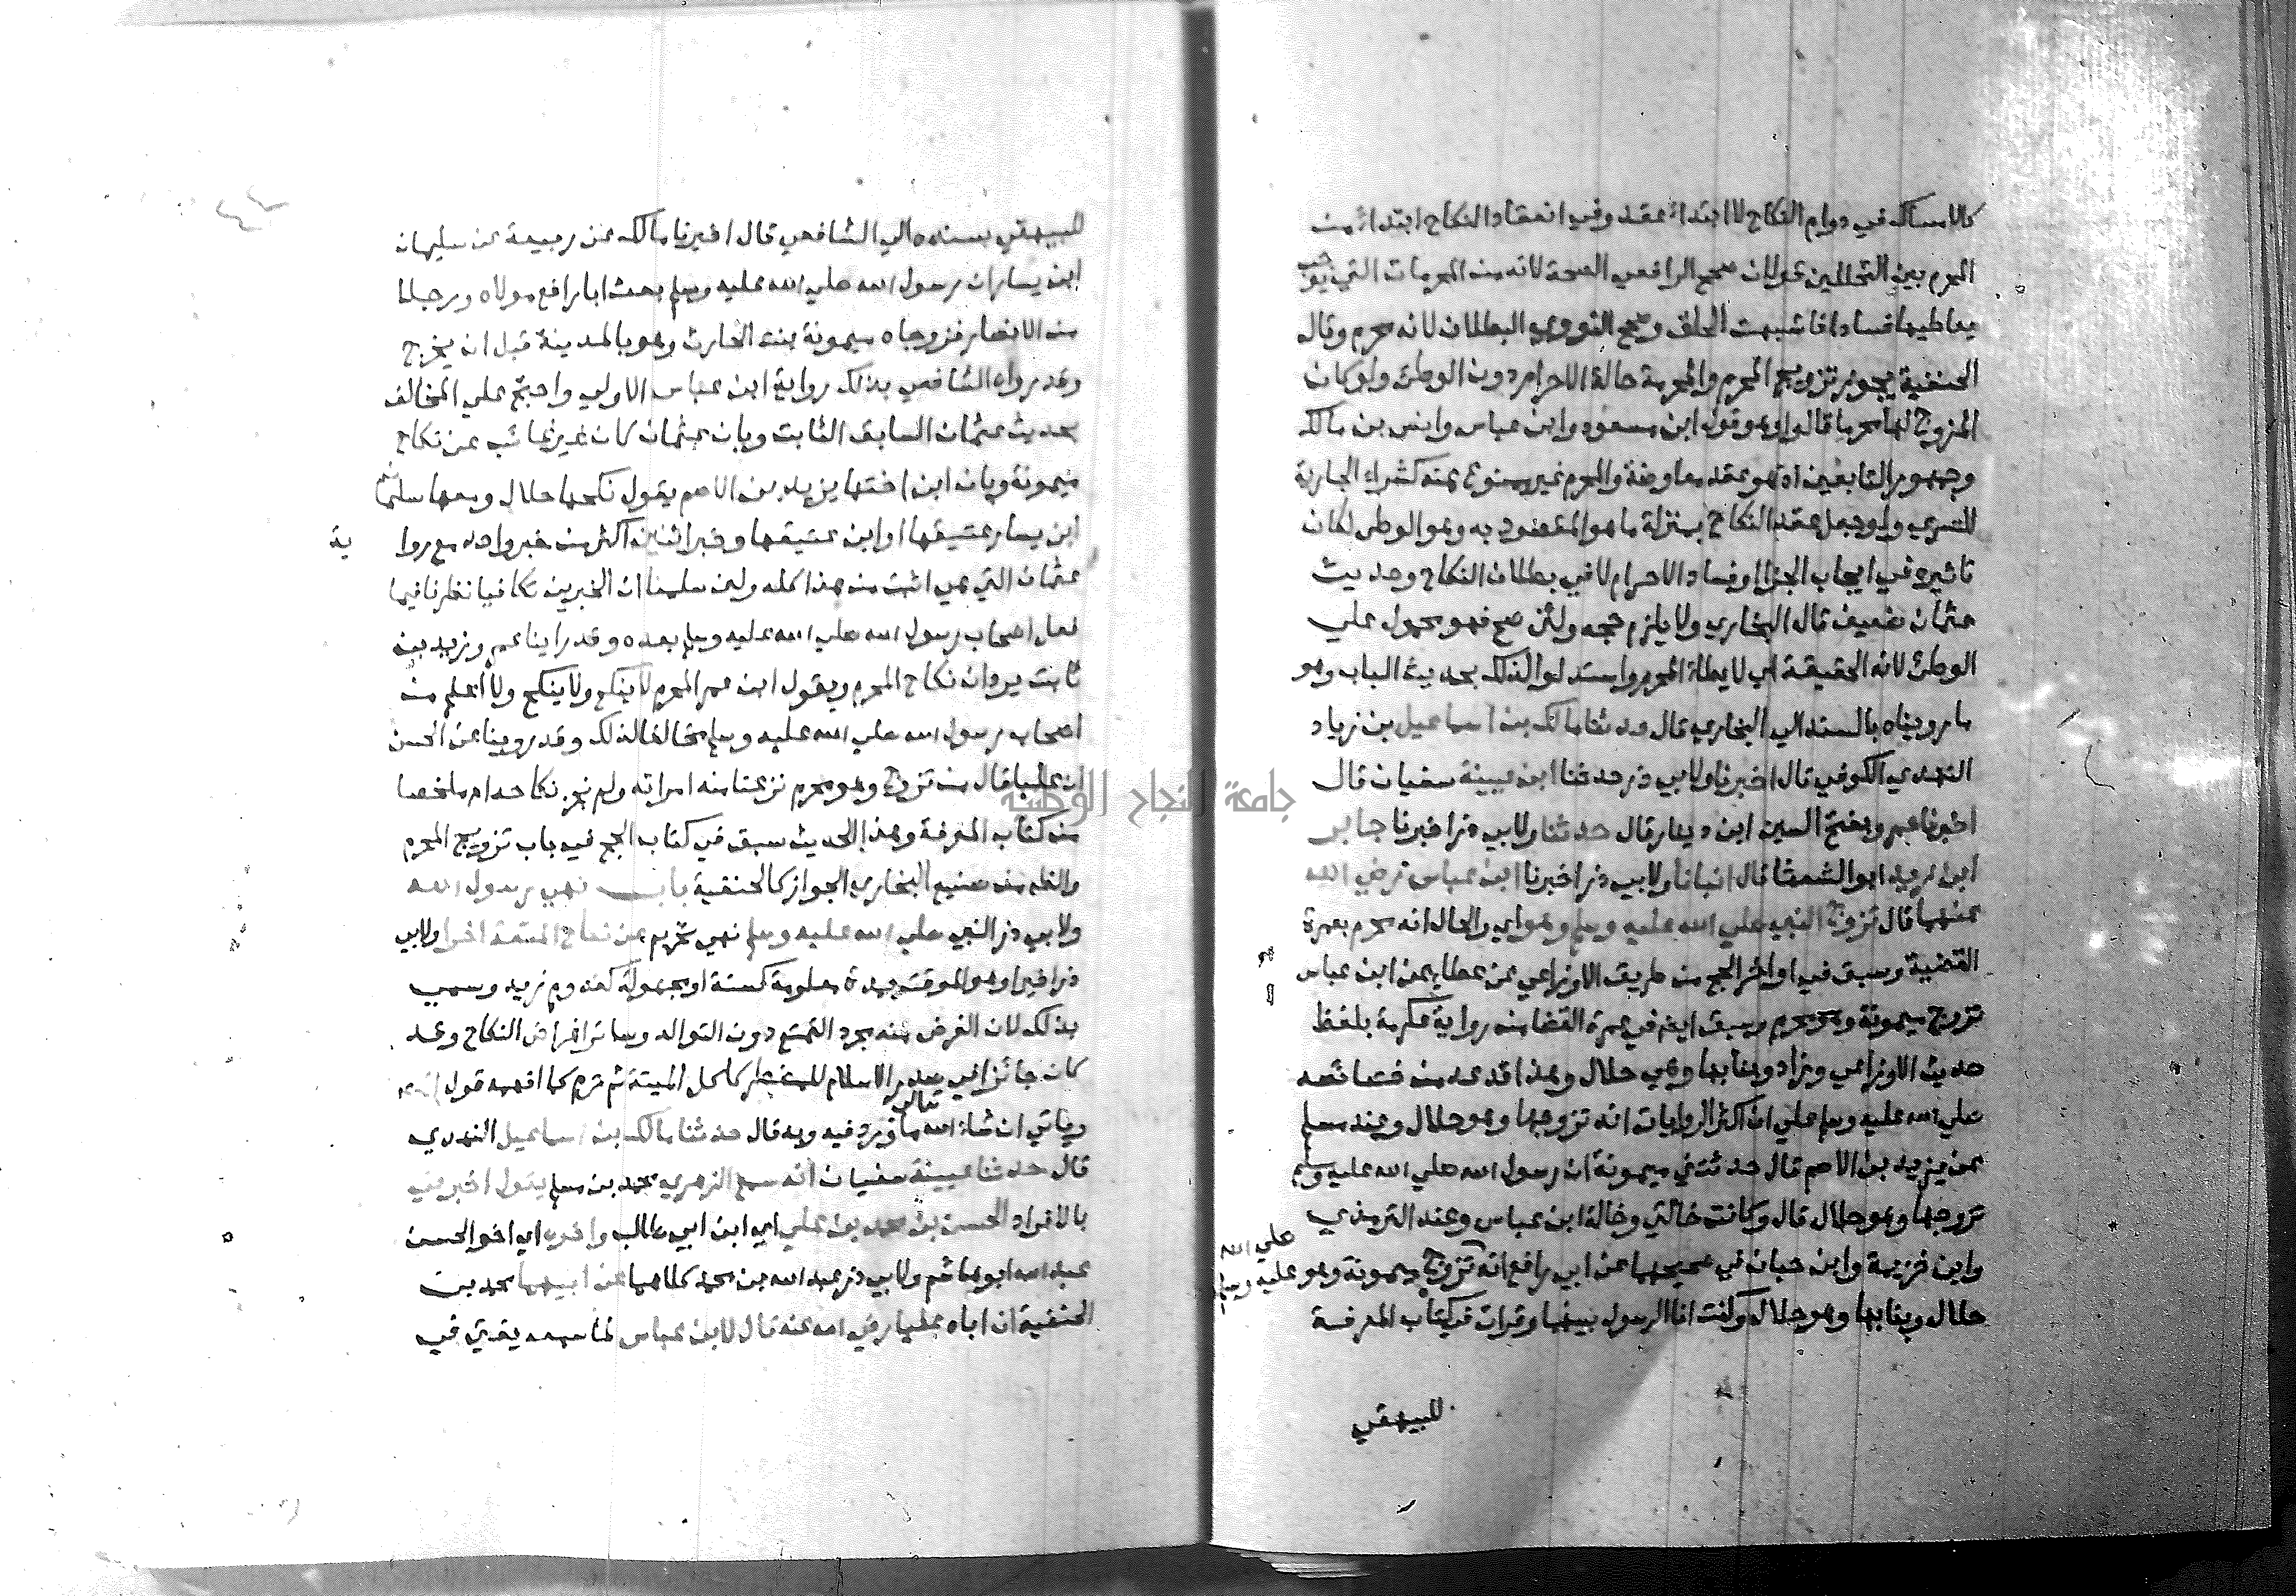 كالامساك في دوام النكاح لا ابتداء عقد وفي انعقاد النكاح ابتداء من
المحرم بين التحللين قولان صحح الرافعي الصحة لانه من المحرمات التي لا يوجب
تعاطيها فسادا فاشبهت الحلق وصحح النووي البطلان لانه محرم وقال
الحنفية يجوز تزويج المحرم والمحرمة حالة الاحرام دون الوطئ ولو كان
المزوج لها محرما قالوا وهو قول ابن مسعود وابن عباس وانس بن مالك
وجمهور التابعين اذ هو عقد معاوضة والمحرم غير ممنوع عنه كشراء الجارية
للتسري ولو جعل عقد النكاح بمنزلة ما هو المقصود به وهو الوطي لكان
تاثيره في ايجاب الجزا او فساد الاحرام لا في بطلان النكاح وحديث
عثمان ضعيف قال البخاري ولا يلزم حجه ولئن صح فهو محمول علي
الوطئ لانه الحقيقة اي لا يطاء المحرم واستدلوا لذلك بحديث الباب وهو
ما رويناه بالسند الي البخاري قال حدثنا مالك بن اسماعيل بن زياد
النهدي الكوفي قال اخبرنا ولابي ذر حدثنا ابن عيينة سفيان قال
اخبرنا عمرو بفتح العين ابن دينار قال حدثنا ولابي ذر اخبرنا جابر
ابن زيد ابو الشعثا قال انبانا ولابي ذر اخبرنا ابن عباس رضي الله
عنهما قال تزوج النبي صلي الله عليه وسلم وهو اي والحال انه محرم بعمرة
القضية وسبق في اواخر الحج من طريق الاوزاعي عن عطاء عن ابن عباس
تزوج ميمونة وهو محرم وسبق ايض في عمرة القضا من رواية عكرمة بلفظ
حديث الاوزاعي وزاد وبنا بها وهي حلال وهذا قد عد من خصائصه
صلي الله عليه وسلم علي ان اكثر الروايات انه تزوجها وهو حلال وعند مسلم
عن يزيد بن الاصم قال حدثتني ميمونة ان رسول الله صلي الله عليه وسلم
تزوجها وهو حلال قال وكانت خالتي وخالة ابن عباس وعند الترمذي
وابن خزيمة وابن حبان في صحيحيهما عن ابي رافع انه صلي الله عليه وسلم تزوج ميمونة وهو
حلال وبنا بها وهو حلال وكنت انا الرسول بينهما وقرات في كتاب المعرفة
للبيهقي
للبيهقي بسنده الي الشافعي قال اخبرنا مالك عن ربيعة عن سليمان
ابن يسار ان رسول الله صلي الله عليه وسلم بعث ابا رافع مولاه ورجلا
من الانصار فزوجاه ميمونة بنت الحارث وهو بالمدينة قبل ان يخرج
وقد رواه الشافعي بذلك رواية ابن عباس الاولي واحتج علي المخالف
بحديث عثمان السابق الثابت وبان عثمان كان غير غائب عن نكاح
ميمونة وبان ابن اختها يزيد بن الاصم يقول نكحها حلال ومعها سليمان
ابن يسار عتيقها او ابن عتيقها وخبر اثنين اكثر من خبر واحد مع رواية
عثمان التي هي اثبت من هذا كله ولئن سلمنا ان الخبرين تكافيا نظرنا فيما
فعل اصحاب رسول الله صلي الله عليه وسلم بعده وقد راينا عمر وزيد بن
ثابت يردان نكاح المحرم ويقول ابن عمر المحرم لا ينكح ولا ينكح ولا اعلم من
اصحاب رسول الله صلي الله عليه وسلم مخالفا لذلك وقد روينا عن الحسن
ان عليا قال من تزوج وهو محرم نزعنا منه امراته ولم نجز نكاحه اه ملخصا
من كتاب المعرفة وهذا الحديث سبق في كتاب الحج في باب تزويج المحرم
والظ من صنيع البخاري الجواز كالحنفية باب نهي رسول الله
ولابي ذر النبي صلي الله عليه وسلم نهي تحريم عن نكاح المتعة اخرا ولابي
ذر اخيرا وهو الموقت بمدة معلومة كسنة او مجهولة كقدوم زيد وسمي
بذلك لان الغرض منه مجرد التمتع دون التوالد وسائر اغراض النكاح وقد
كان جائزا في صدر الاسلام للمضطر كاكل الميتة ثم حرم كما افهمه قول
وياتي ان شاء الله تعالي ما ورد فيه وبه قال حدثنا مالك بن اسماعيل النهدي
قال حدثنا عيينة سفيان انه سمع الزهري محمد بن مسلم يقول اخبرني
بالافراد الحسن بن محمد بن علي اي ابن ابي طالب واخوه اي اخو الحسن
عبد الله ابو هاشم ولابي ذر عبد الله بن محمد كلاهما عن ابيهما محمد بن
الحنفية ان اباه عليا رضي الله عنه قال لابن عباس لما سمعه يفتي في
جامعة النجاح الوطنية